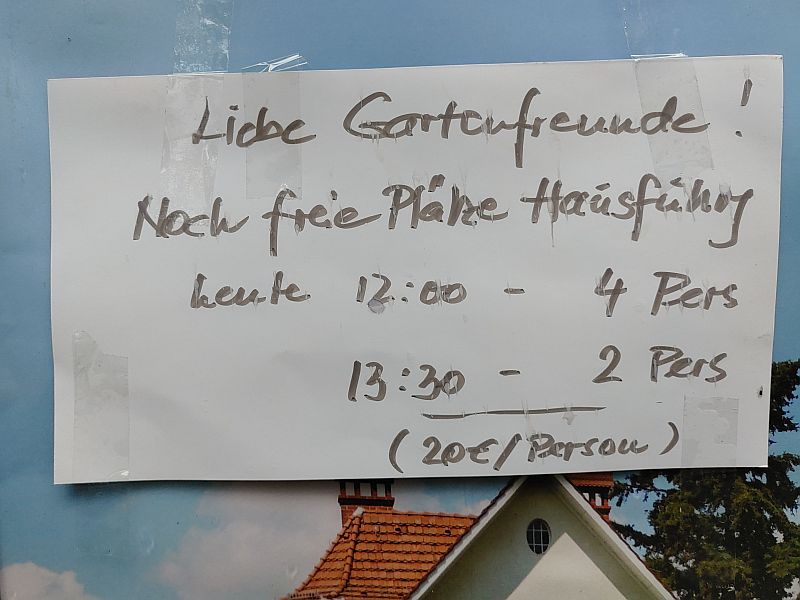 Liebe Gartenfreunde!
Noch freie Plätze Hausführg
heute 12:00 - 4 Pers
13:30 - 2 Pers
(20€/Person)